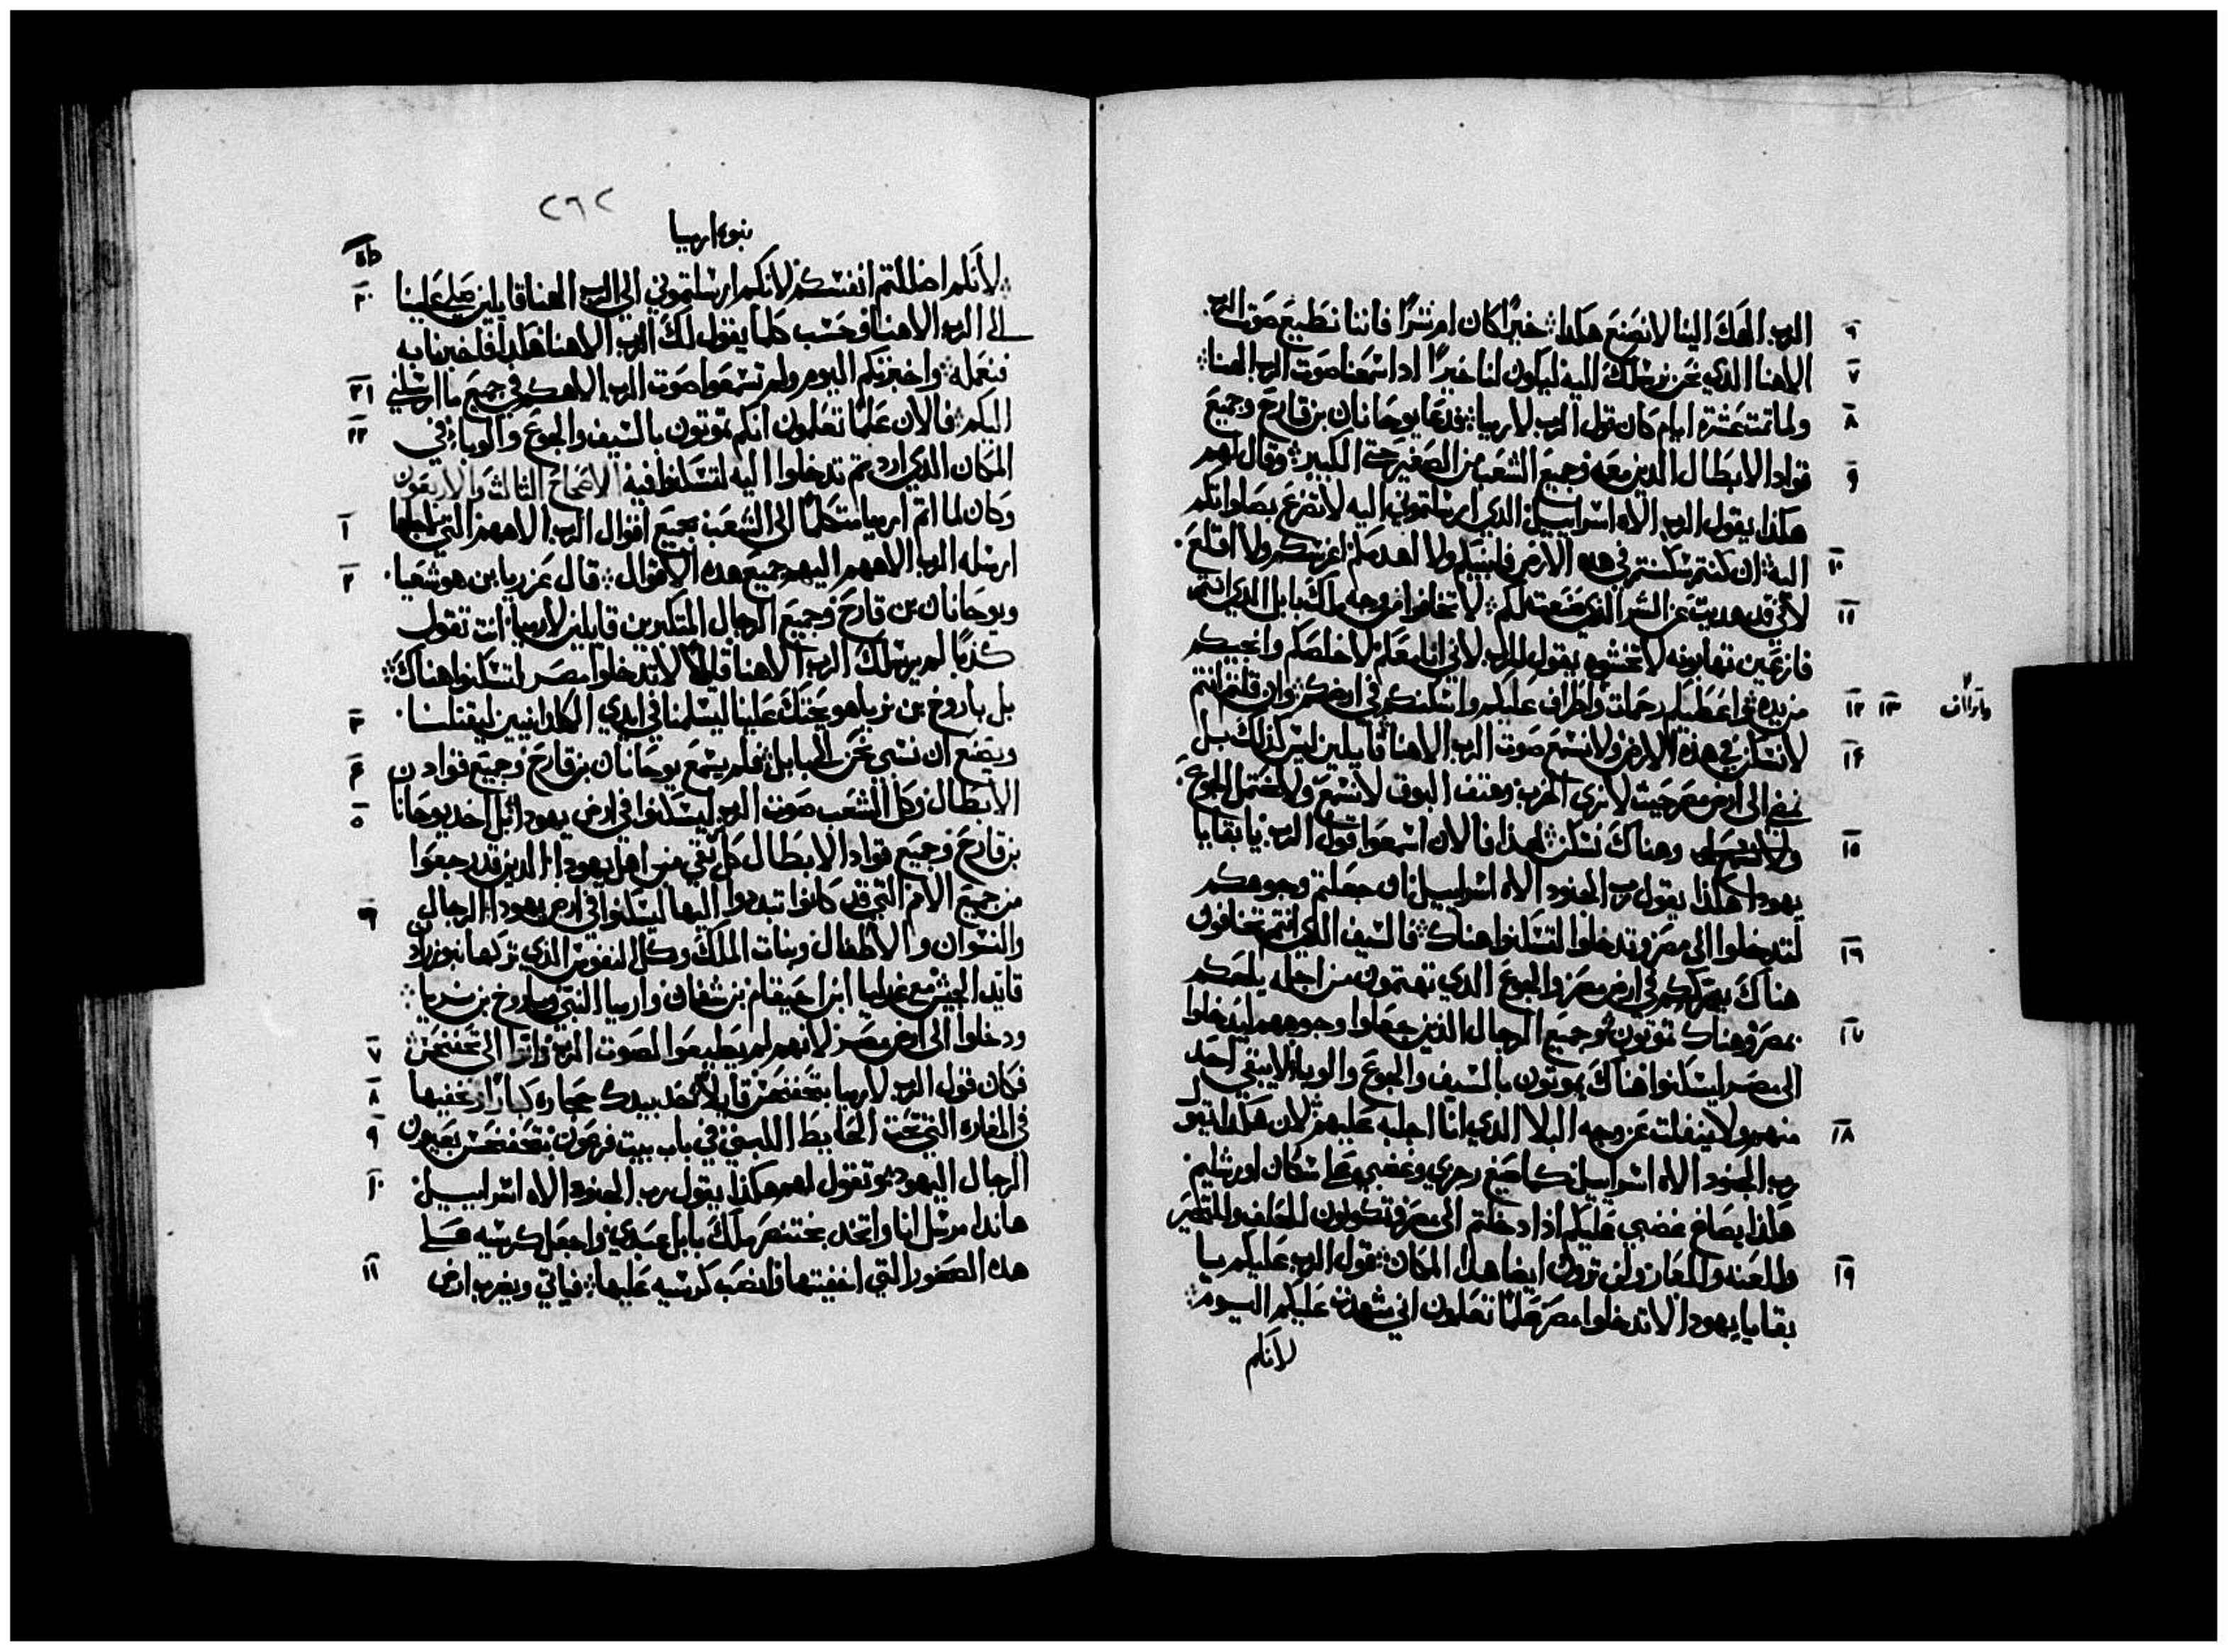 الرب الهك الينا لانصنع هكذا خيرًا كان ام شرًا فاننا نطيع صوت الرب ٦
الاهنا الذي نحن نرسلك اليه ليكون لنا خيرًا اذا سمعنا صوت الرب الهنا ٧
ولما تمت عشرة ايام كان قول الرب لارميا فدعا يوحانان بن قارح وجميع ٨
قواد الابطال الذين معه وجميع الشعب من الصغير حتى الكبير وقال لهم ٩
هكذا يقول الرب الاه اسراييل الذي ارسلتموني اليه لاتضرع بصلواتكم
اليه ان كنتم سكنتم في هذه الارض فابنيكم ولا اهدمكم اغرسكم ولا اقلع ١٠
لاني قد هديت عن الشر الذي صنعته لكم لا تخافوا من وجه ملك بابل الذي انتم ١١
فازعين تهابونه لا تخشوه يقول الرب لاني انا معكم لاخلصكم وانجيكم
من يده واعطيكم رحمات واطراف عليكم واسكنكم في ارضكم وان قلتم انتم ١٢ ١٣
لانسكن في هذه الارض ولا نسمع صوت الرب الاهنا قايلين ليس كذلك بل ١٤
نمضي الى ارض مصر حيث لا نري الحرب وهتف البوق لانسمع ولا نحتمل الجوع
وهناك نسكن لهذا فالان اسمعوا قول الرب يا بقايا ١٥
يهودا هكذا يقول رب الجنود الاه اسراييل ان جعلتم وجوهكم
لتدخلوا الى مصر وتدخلوا لتسكنوا هناك فالسيف الذي انتم تخافون ١٦
هناك يدرككم في ارض مصر والجوع الذي تهتمون من اجله يلحقكم
بمصر وهناك تموتون وجميع الرجال الذين جعلوا وجوههم ليدخلوا ١٧
الى مصر ليسكنوا هناك يموتون بالسيف والجوع والوبا لا يبقي احد
منهم ولا ينفلت عن وجه البلا الذي انا اجلبه عليهم لان هكذا يقول ١٨
رب الجنود الاه اسراييل كما صيغ رجزي وغضبي على سكان اورشليم
هكذا يصاغ غضبي عليكم اذا دخلتم الى مصر وتكونون للحلف وللتطير
وللعنه وللعار ولن تروا ايضا هذا المكان قول الرب عليكم يا ١٩
بقايا يهودا لا تدخلوا مصر علمًا تعلمون اني شهدت عليكم اليوم
لانكم
٢٦٢
نبوة ارميا
لانكم اضللتم انفسكم لانكم ارسلتموني الى الرب الهنا قايلين صلي علينا ٢٠
الى الرب الاهنا وحسب كلما يقول لك الرب الاهنا هكذا فاخبرنا به
فنعمله واخبرتكم اليوم ولم تسمعوا صوت الرب الاهكم في جميع ما ارسلني ٢١
اليكم فالان علمًا تعلمون انكم تموتون بالسيف والجوع والوبا في ٢٢
المكان الذي اردتم تدخلوا اليه لتسكنوا فيه الاصحاح الثالث والاربعون
وكان لما اتم ارميا متكلمًا الى الشعب جميع اقوال الرب الاههم التي لاجلها ١
ارسله الرب الاههم اليهم جميع هذه الاقوال قال عزريا بن هوشعيا ٢
ويوحانان بن قارح وجميع الرجال المتكبرين قايلين لارميا انت تقول
كذبًا لم يرسلك الرب الاهنا قايلًا لا تدخلوا مصر لتسكنوا هناك
بل باروخ بن نرياهو يحتك علينا ليسلمنا في ايدي الكلدانيين ليقتلنا ٣
ويصنع ان نسبي نحن الى بابل فلم يسمع يوحانان بن قارح وجميع قواد ٤
الابطال وكل الشعب صوت الرب ليسكنوا في ارض يهودا بل اخذ يوحانان ٥
بن قارح وجميع قواد الابطال كل بقي من اهل يهودا الذين قد رجعوا
من جميع الامم التي قد كانوا تبددوا اليها ليسكنوا في ارض يهودا الرجال ٦
والنسوان والاطفال وبنات الملك وكل النفوس الذي تركها نبوزردان
قايد الجيش مع غدليا ابن احيقام بن شافان وارميا النبي وباروخ بن نريا
ودخلوا الى ارض مصر لانهم لم يطيعوا لصوت الرب واتوا الى تحفنحس ٧
فكان قول الرب لارميا بتحفنحس قايلًا خذ بيدك حجاره كبارًا وتخفيها ٨
في المغاره التي تحت الحايط اللبني في باب بيت فرعون بتحفنحس بعيون ٩
الرجال اليهود وتقول لهم هكذا يقول رب الجنود الاه اسراييل ١٠
هاندا مرسل انا واتخد بختنصر ملك بابل عبدي واجعل كرسيه على
هذه الصخور التي اخفيتها وانصب كرسيه عليها فياتي ويضرب ارض ١١